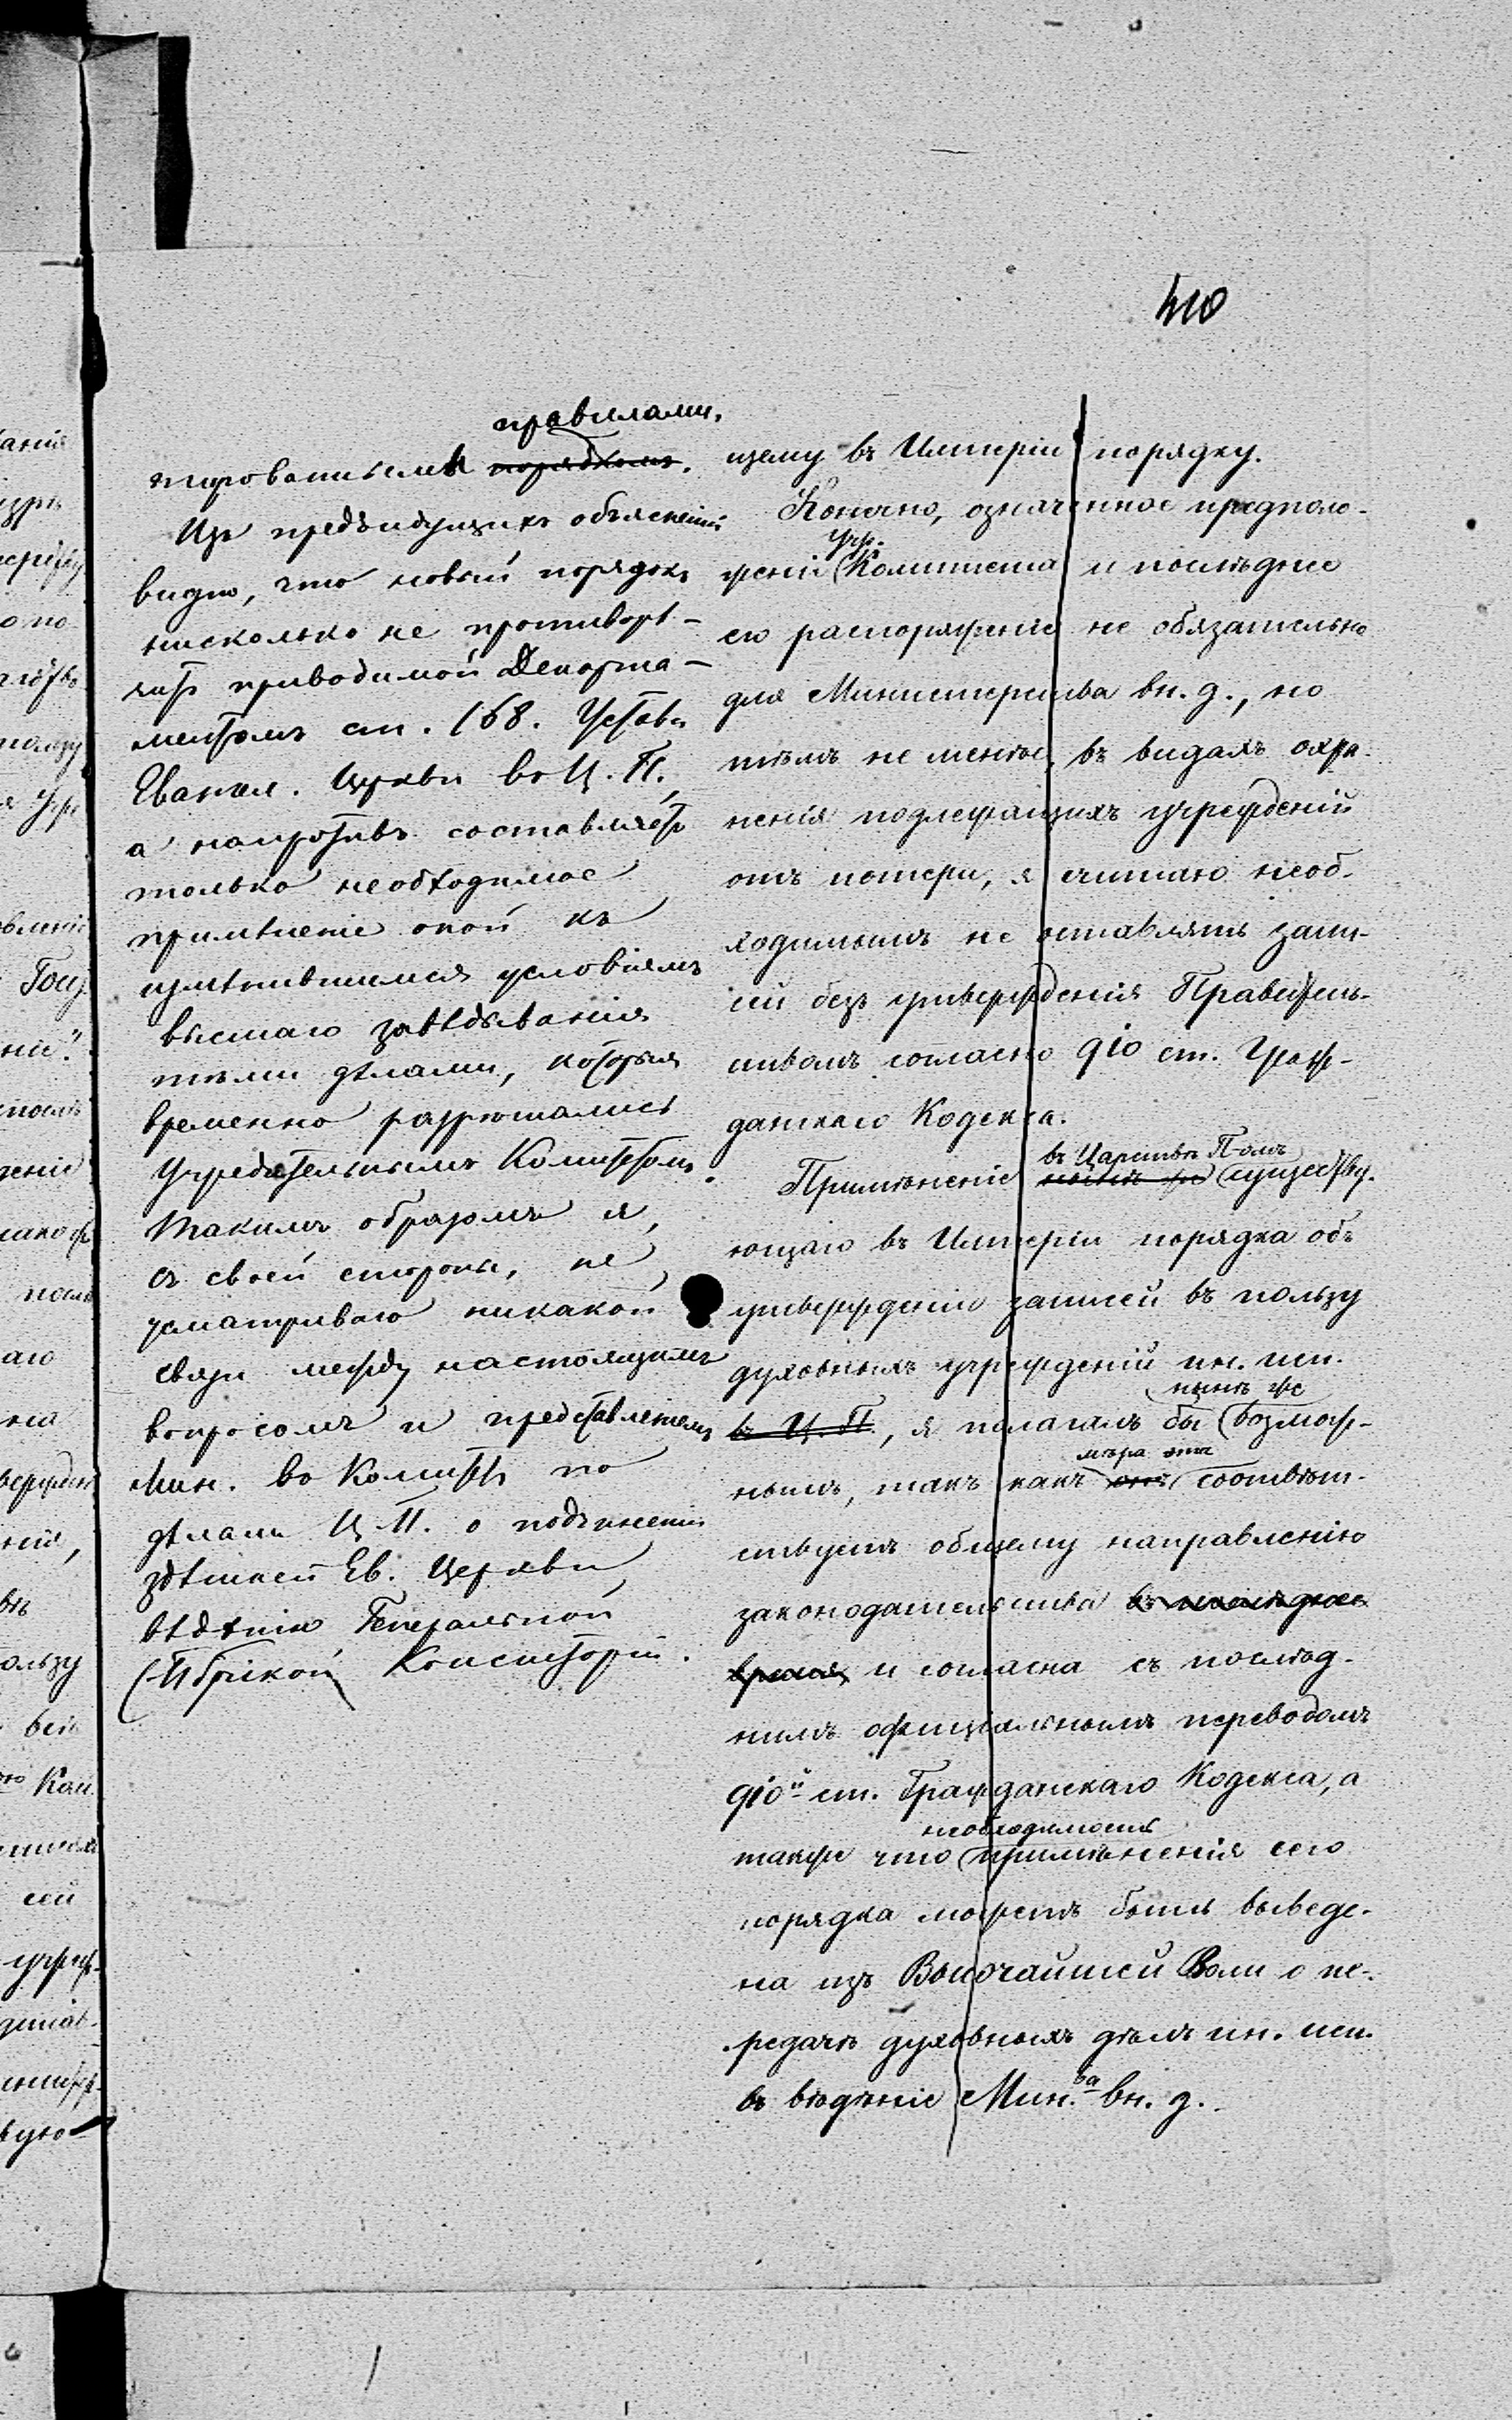 410
правилами.
тировательных порядкомъ.
Изъ предъидущихъ объясненій
видно, что новый порядокъ
нисколько не противорѣ-
читъ приводимой Депорта-
ментомъ ст. 168. Устава
Евангел. Церкви въ Ц. П.,
а напротивъ составляетъ
только необходимое
примѣненіе оной къ
измѣнившимся условіямъ
высшаго завѣдыванія
тѣми дѣлами, которыя
временно разрѣшались
Учредительнымъ Комитетомъ.
Такимъ образомъ я,
съ своей стороны, не
усматриваю никакой
связи между настоящимъ
вопросомъ и представленіемъ
Мин. въ Комитетъ по
дѣламъ Ц. П. о подчиненіи
здѣшней Ев. Церкви
вѣдѣнію Генеральной
(П-бргской) Консисторіи.
щему въ Имперіи порядку.
Конечно, означенное предполо-
Учр.
женіе Комитета и послѣднее
его распоряженіе не обязательно
для Министерства вн. д., но
тѣмъ не менѣе, въ видахъ охра-
ненія подлежащихъ учрежденій
отъ потери, я считаю необ-
ходимымъ не оставлять запи-
сей безъ утвержденія Правитель-
ствомъ согласно 910 ст. Граж-
данскаго Кодекса.
въ Царствѣ П-омъ
Примѣненіе нынѣ же существу-
ющаго въ Имперіи порядка объ
утвержденіи записей въ пользу
духовныхъ учрежденій ин. исп.
нынѣ же
въ Ц. П., я полагалъ бы возмож-
мѣра эта
нымъ, такъ какъ онъ соотвѣт-
ствуетъ общему направленію
законодательства въ послѣднее
время и согласна съ послѣд-
нимъ офиціальнымъ переводомъ
910й ст. Гражданскаго Кодекса, а
необходимость
также что примѣненія сего
порядка можетъ быть выведе-
на изъ Высочайшей Воли о пе-
редачѣ духовныхъ дѣлъ ин. исп.
въ вѣдѣніе Мин.ва вн. д.